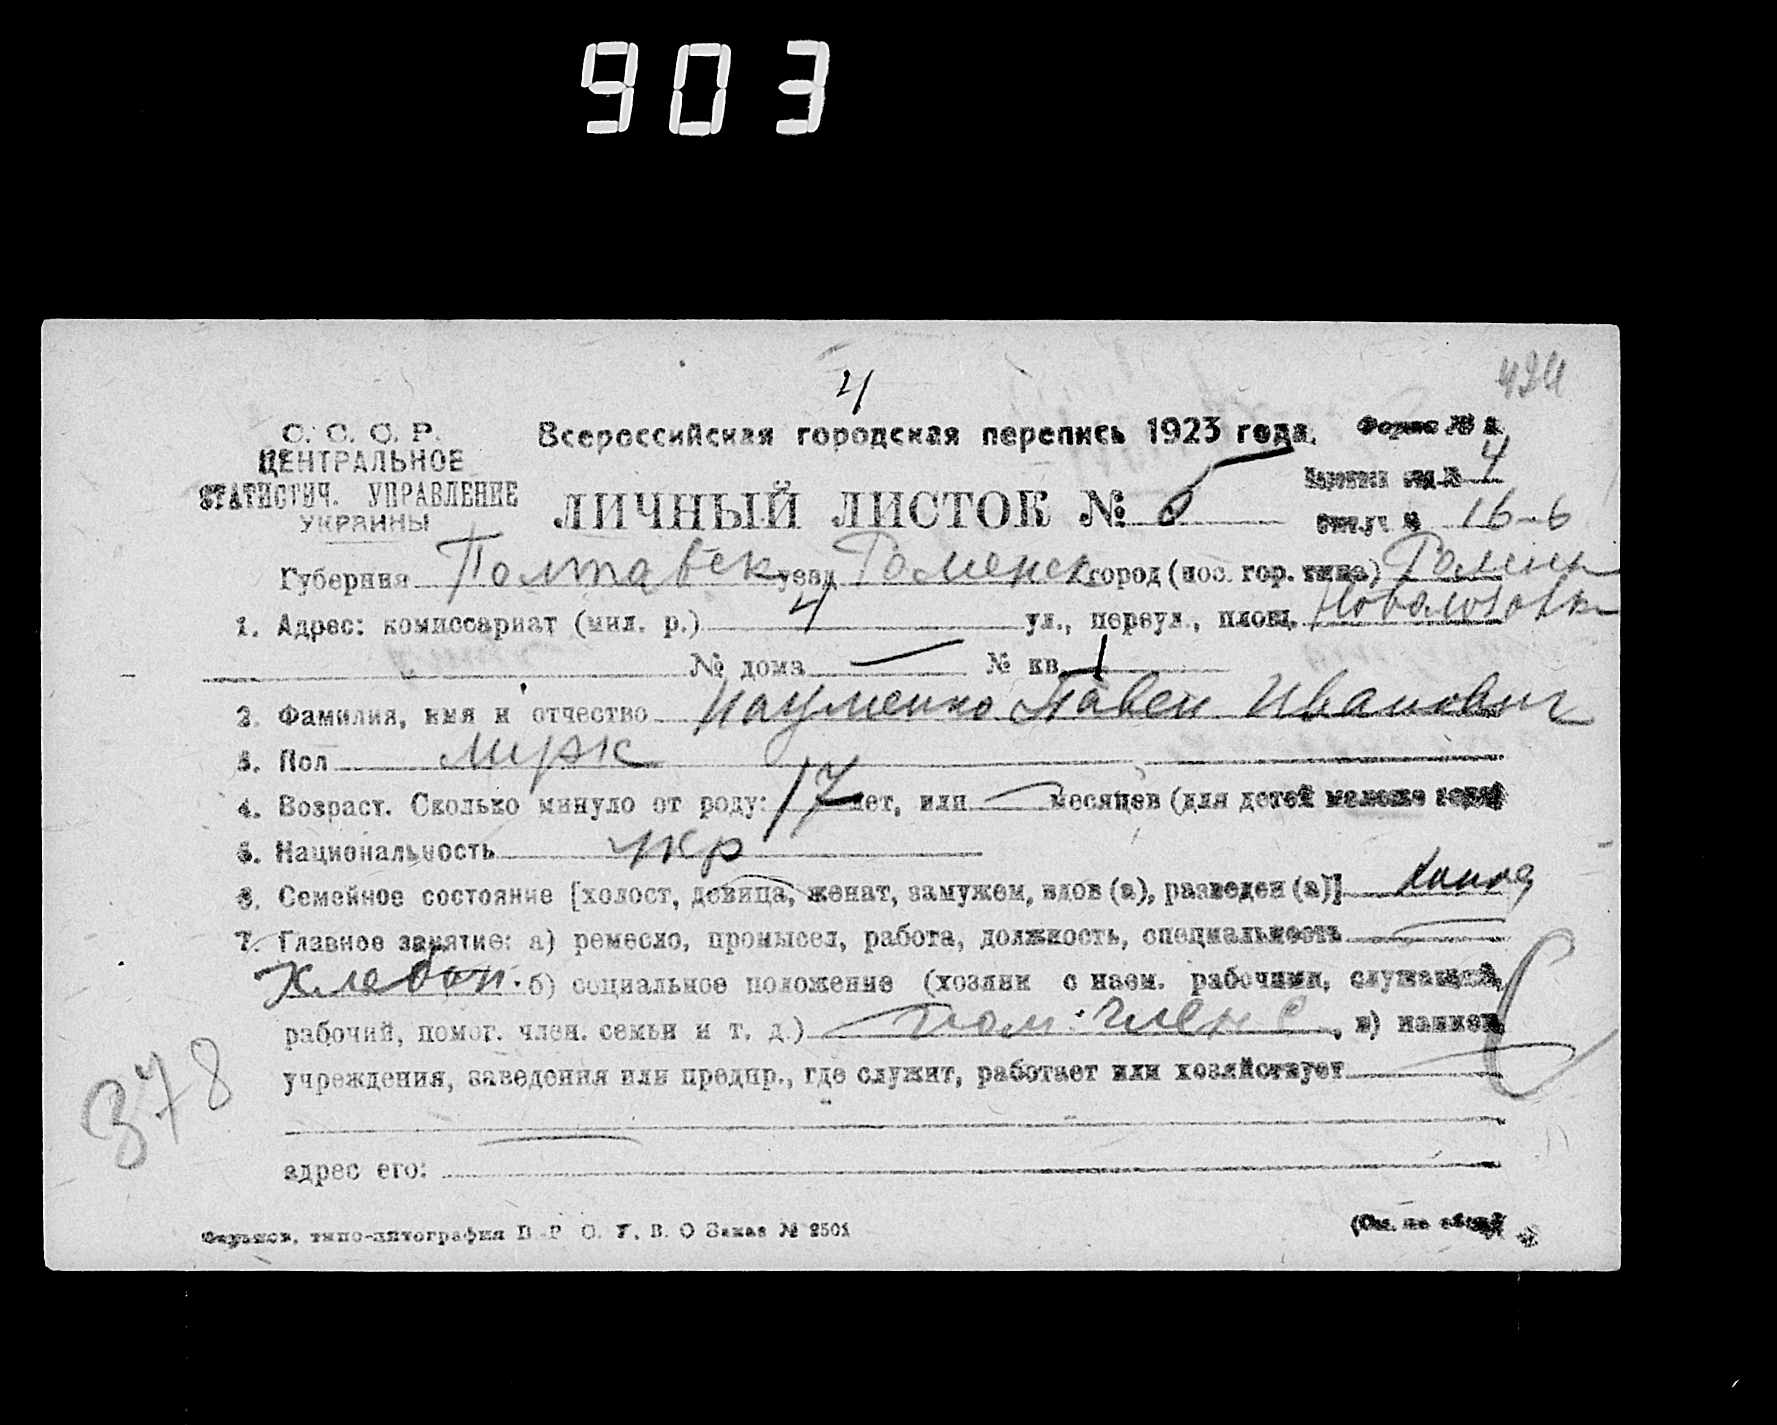 903
424
4
С. С. С. Р.
ЦЕНТРАЛЬНОЕ
СТАТИСТИЧ. УПРАВЛЕНИЕ
УКРАИНЫ
Всероссийская городская перепись 1923 года.
Форма №
ЛИЧНЫЙ ЛИСТОК №
4
16-6
Губерния Полтавск уезд Роменск город (пос. гор. типа) Ромны
1. Адрес: комиссариат (мил. р.) 4 ул., переул., площ.
№ дома — № кв. 1
2. Фамилия, имя и отчество Науменко Павел Иванович
3. Пол мужск
4. Возраст. Сколько минуло от роду: 17 лет, или — месяцев (для детей моложе года)
5. Национальность укр
6. Семейное состояние [холост, девица, женат, замужем, вдов (а), разведен (а)] холост
7. Главное занятие: а) ремесло, промысел, работа, должность, специальность
хлебоп. б) социальное положение (хозяин с наем. рабочими, служащий,
рабочий, помог. член. семьи и т. д.) пом. член с, в) наимен.
учреждения, заведения или предпр., где служит, работает или хозяйствует
378
адрес его:
Харьков, типо-литография В. Заказ № 2501
(См. на обор.)